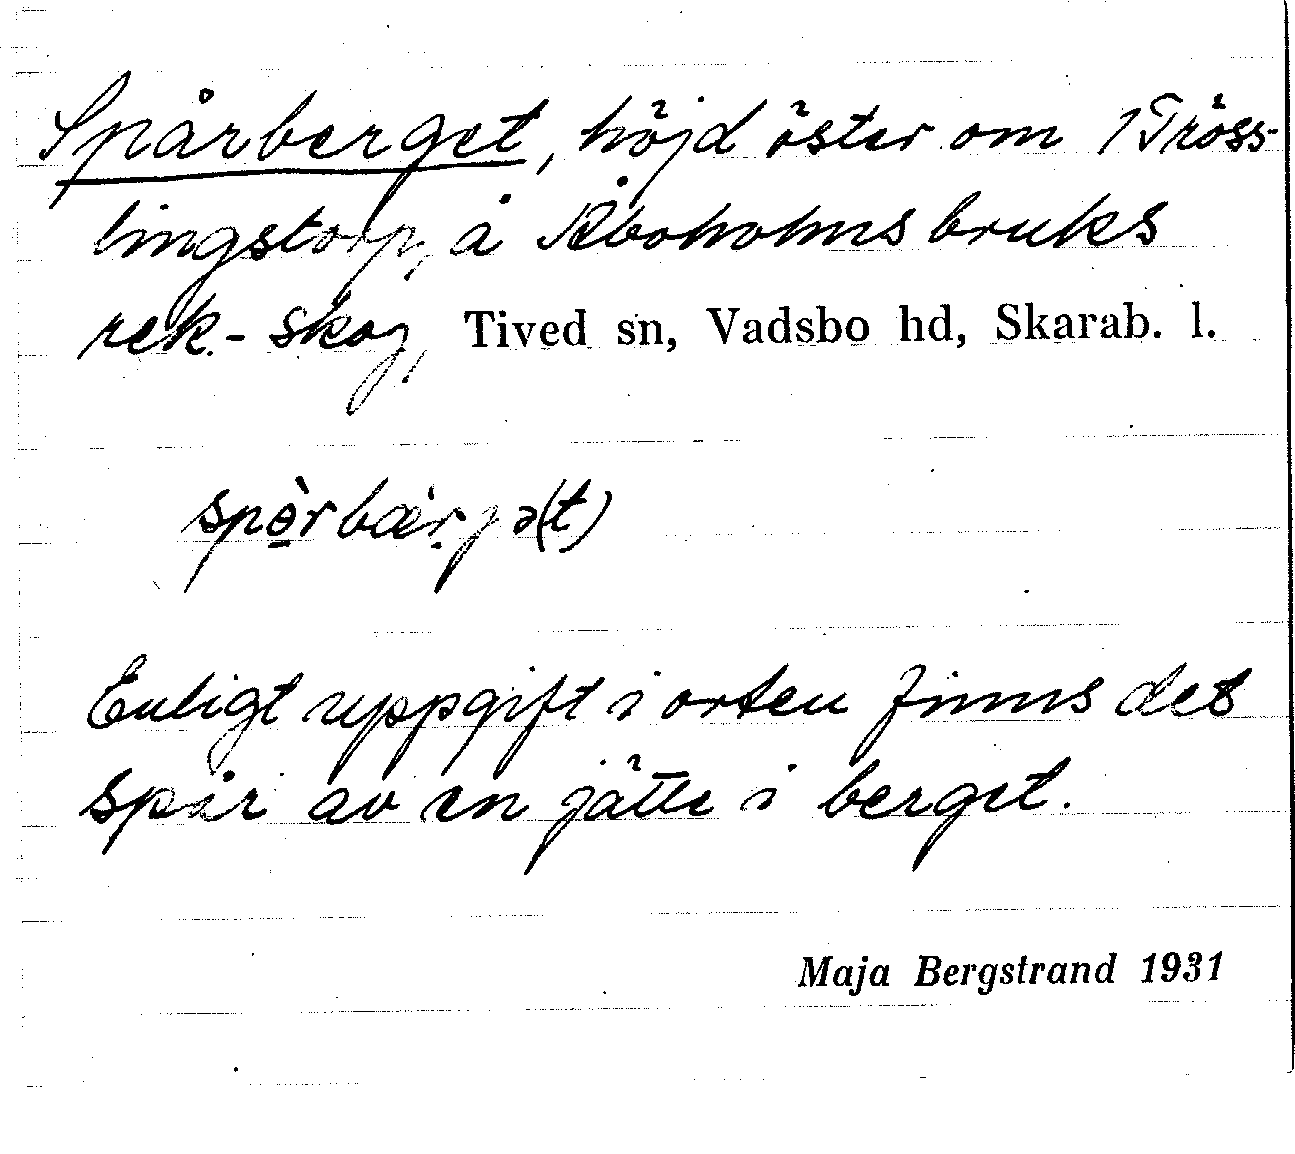 Spårberget, höjd öster om 1 Tröss-
lingstorp, å Åboholms bruks
rek.-skog, Tived sn, Vadsbo hd, Skarab. l.
Enligt uppgift i orten finns det
spår av en jätte i berget.
Maja Bergstrand 1931